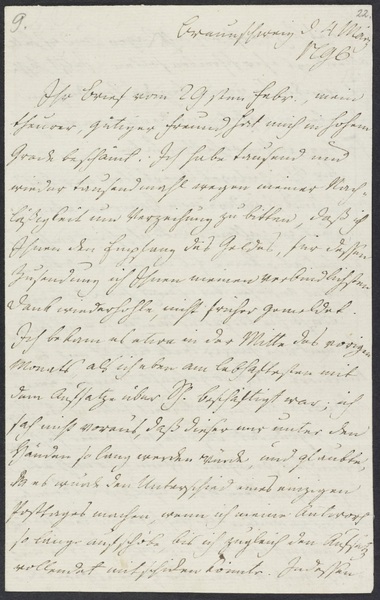 9.
22.
Braunschweig d. 4 März
1796
Ihr Brief vom 29sten Febr., mein
theurer, gütiger Freund, hat mich in hohem
Grade beschämt. Ich habe tausend und
wieder tausendmahl wegen meiner Nach-
läßigkeit um Verzeihung zu bitten, daß ich
Ihnen den Empfang des Geldes, für dessen
Zusendung ich Ihnen meinen verbindlichsten
Dank wiederhohle, nicht früher gemeldet.
Ich bekam es etwa in der Mitte des vorigen
Monats als ich eben am lebhaftesten mit
dem Aufsatze über Sh. beschäftigt war, ich
sah nicht voraus, daß dieser mir unter den
Händen so lang werden würde, und glaubte,
es würde den Unterschied eines einzigen
Posttages machen, wenn ich meine Antwort
so lange aufschöbe, bis ich zugleich den Aufsatz
vollendet mitschicken könnte. Indessen